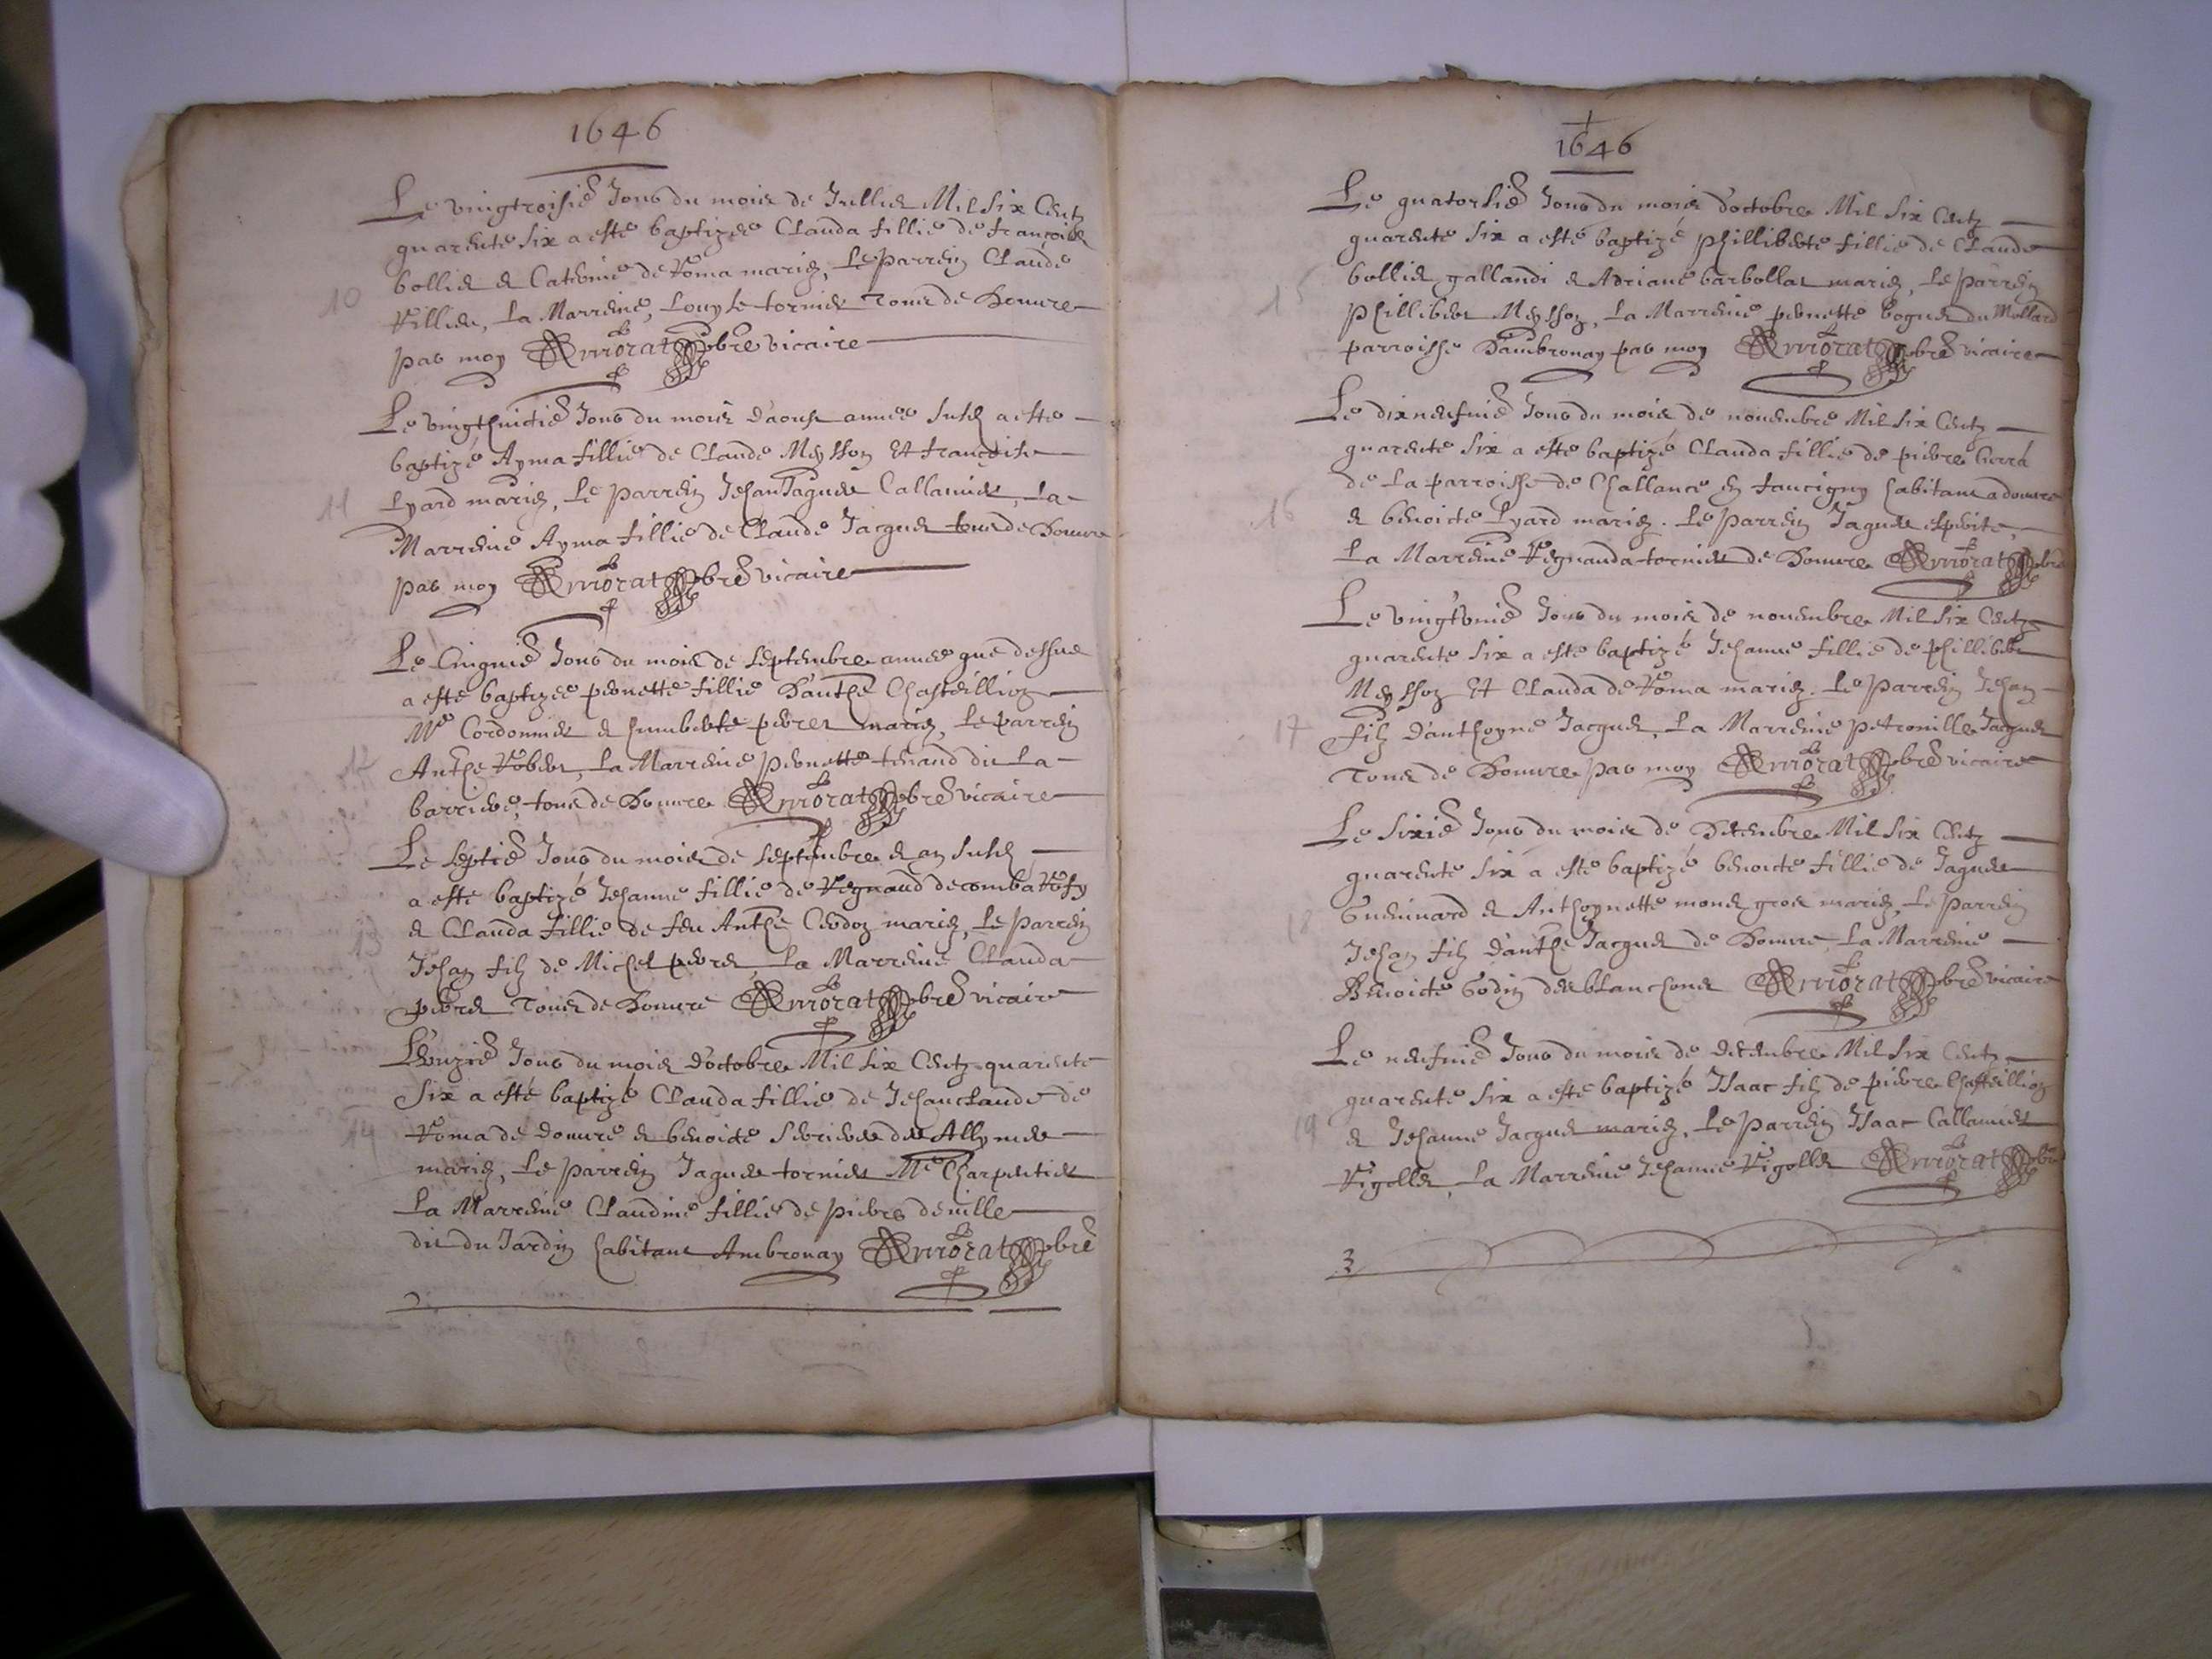 1646
Le vingtroisie Jour du mois de Jullier Mil Six Centz
quarente Six a esté baptizee Clauda fillie de françois
bollier et Catherine de Roma mariez, Le Parrein Claude
10
Killier, La Marreine, Louyse tornier Tous de Douure
par moy Amorat pbre vicaire
Le vingthuictie Jour du mois D'aoust annee Susd a esté
baptizé Ayma fillie de Claude Meysson Et françoise
11
Lyard mariez, Le Parrein Jehan Jaques Callamier, La
Marreine Ayma fillie de Claude Jacques tous de Douure
par moy Amorat pbre vicaire
Le Cinquie Jour du mois de Septembre annee que dessus
a esté baptizee pernette fillie D'anthe Chasteillion
Me Cordonnier et humberte perret mariez, Le parrein
12
Anthe Robert, La Marreine pernette tenand dit La
barriere, tous de Douure Amorat pbre vicaire
Le Septie Jour du mois de Septembre et an Susd
a esté baptizé Jehanne fillie de Regnaud decomba
et Clauda fillie de feu Anthe mariez, Le Parrein
13
Jehan filz de Michel perret La Marreine Clauda
perret Tous de Douure Amorat pbre vicaire
L'unzie Jour du mois D'octobre Mil Six Centz quarente
Six a esté baptizé Clauda fillie de Jehanclaude de
14
Roma de Douure et benoicte des Allymes
mariez, Le Parrein Jaques tornier Me Charpentier
La Marreine Claudine fillie de pierre deville
dit du Jardin habitant Ambronay Amorat pbre
1646
Le quatorsie Jour du mois d'octobre Mil Six Centz
quarente Six a esté baptizé philliberte fillie de Claude
15
bollier gallandi et Adriane barbollat mariez, Le parrein
phillibert Meysson, La Marreine pernette du Mollard
parroisse D'ambronay par moy Amorat pbre vicaire
Le dixneufuie Jour du mois de nouembre Mil Six Centz
quarente Six a esté baptizé Clauda fillie de pierre
de La parroisse de Challance en faucigny habitant a douure
16
et benoicte Lyard mariez. Le Parrein Jaques
La Marreine Regnauda tornier de Douure Amorat pbre
Le vingtvnie Jour du mois de nouembre Mil Six Centz
quarente Six a esté baptizé Jehanne fillie de phillibert
Meysson Et Clauda de Roma mariez. Le Parrein Jehan
17
filz D'anthoyne Jacques, La Marreine petronille Jacques
Tous de Douure par moy Amorat pbre vicaire
Le Sixie Jour du mois de Decembre Mil Six Centz
quarente Six a esté baptizé benoicte fillie de Jaques
Guennard et Anthoynette mone gros mariez, Le Parrein
18
Jehan filz D'anthe Jacques de Douure La Marreine
Benoicte Godin des blanchons Amorat pbre vicaire
Le neufuie Jour du mois de decembre Mil Six Centz
quarente Six a esté baptizé Isaac filz de pierre Chasteillion
19
et Jehanne Jacques mariez. Le Parrein Isaac Callamier
Rigollet, La Marreine Jehanne Rigollet Amorat pbre